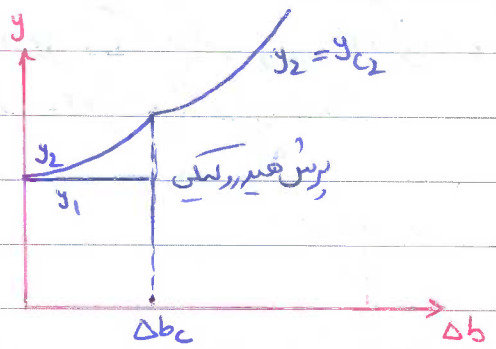 y
y₂ = yc₂
y₂
y₁
پرش هیدرولیکی
Δbc
Δb